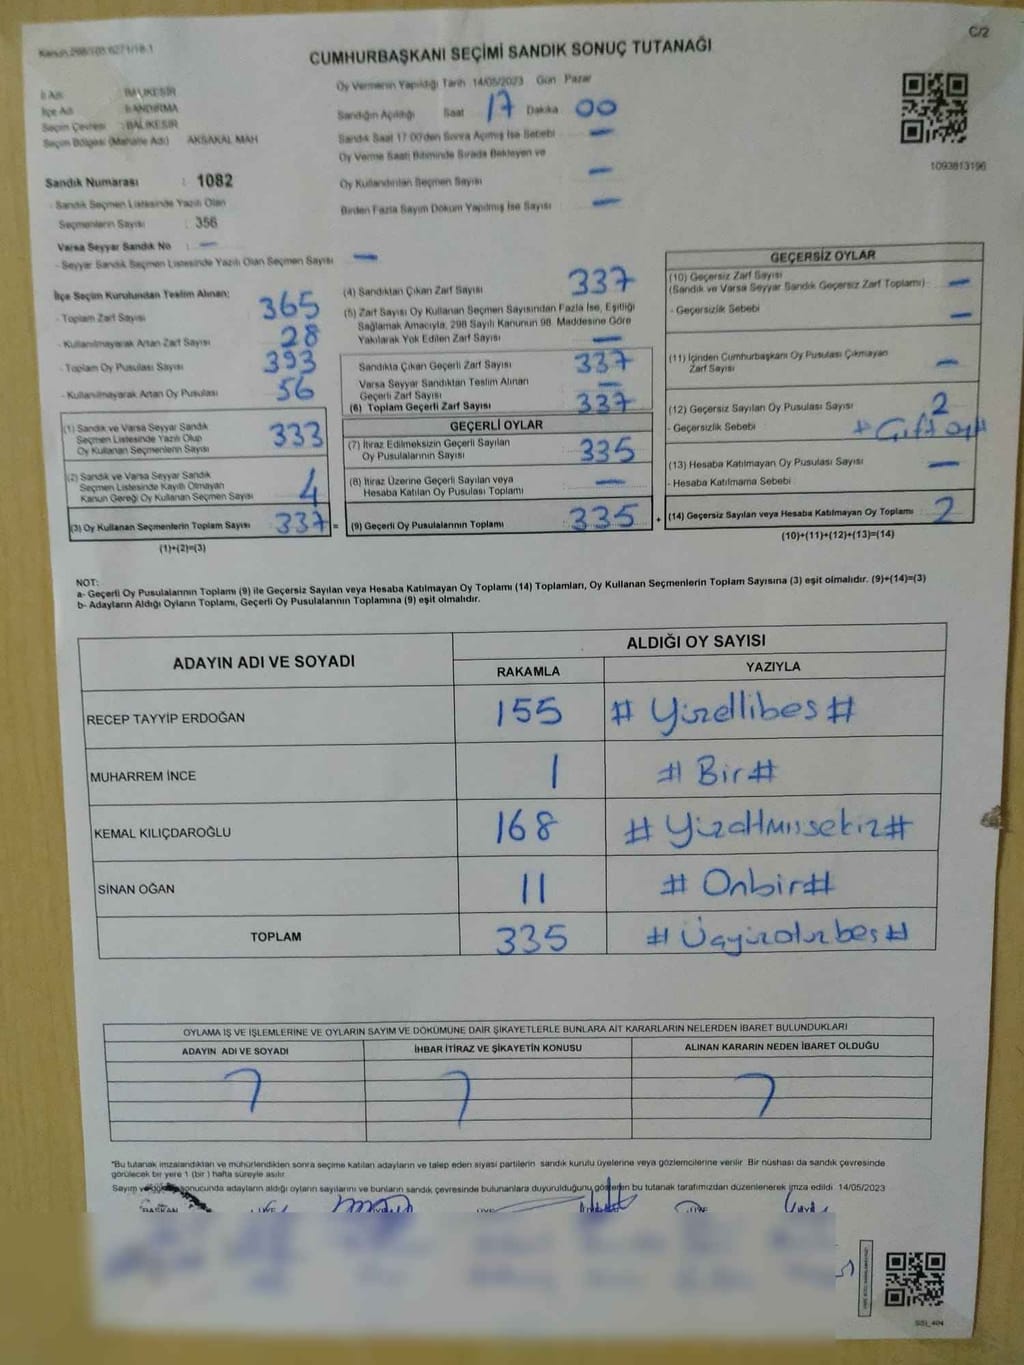 Kanun 298/105 6271/18-1
C/2
CUMHURBAŞKANI SEÇİMİ SANDIK SONUÇ TUTANAĞI
İl Adı : BALIKESİR
İlçe Adı : BANDIRMA
Seçim Çevresi : BALIKESİR
Seçim Bölgesi (Mahalle Adı) AKSAKAL MAH
Sandık Numarası : 1082
- Sandık Seçmen Listesinde Yazılı Olan
Seçmenlerin Sayısı : 356
Varsa Seyyar Sandık No : —
- Seyyar Sandık Seçmen Listesinde Yazılı Olan Seçmen Sayısı —
Oy Vermenin Yapıldığı Tarih 14/05/2023 Gün Pazar
Sandığın Açıldığı Saat 17 Dakika 00
Sandık Saat 17:00'den Sonra Açılmış İse Sebebi —
Oy Verme Saati Bitiminde Sırada Bekleyen ve
Oy Kullandırılan Seçmen Sayısı —
Birden Fazla Sayım Döküm Yapılmış İse Sayısı —
1093813196
İlçe Seçim Kurulundan Teslim Alınan:
- Toplam Zarf Sayısı 365
- Kullanılmayarak Artan Zarf Sayısı 28
- Toplam Oy Pusulası Sayısı 393
- Kullanılmayarak Artan Oy Pusulası 56
(1) Sandık ve Varsa Seyyar Sandık
Seçmen Listesinde Yazılı Olup
Oy Kullanan Seçmenlerin Sayısı 333
(2) Sandık ve Varsa Seyyar Sandık
Seçmen Listesinde Kayıtlı Olmayan
Kanun Gereği Oy Kullanan Seçmen Sayısı 4
(3) Oy Kullanan Seçmenlerin Toplam Sayısı 337 =
(1)+(2)=(3)
(4) Sandıktan Çıkan Zarf Sayısı 337
(5) Zarf Sayısı Oy Kullanan Seçmen Sayısından Fazla İse, Eşitliği
Sağlamak Amacıyla, 298 Sayılı Kanunun 98. Maddesine Göre
Yakılarak Yok Edilen Zarf Sayısı —
Sandıkta Çıkan Geçerli Zarf Sayısı 337
Varsa Seyyar Sandıktan Teslim Alınan
Geçerli Zarf Sayısı —
(6) Toplam Geçerli Zarf Sayısı 337
GEÇERLİ OYLAR
(7) İtiraz Edilmeksizin Geçerli Sayılan
Oy Pusulalarının Sayısı 335
(8) İtiraz Üzerine Geçerli Sayılan veya
Hesaba Katılan Oy Pusulası Toplamı —
(9) Geçerli Oy Pusulalarının Toplamı 335 +
GEÇERSİZ OYLAR
(10) Geçersiz Zarf Sayısı
(Sandık ve Varsa Seyyar Sandık Geçersiz Zarf Toplamı) : —
- Geçersizlik Sebebi —
(11) İçinden Cumhurbaşkanı Oy Pusulası Çıkmayan
Zarf Sayısı —
(12) Geçersiz Sayılan Oy Pusulası Sayısı 2
- Geçersizlik Sebebi # Çift oy #
(13) Hesaba Katılmayan Oy Pusulası Sayısı —
- Hesaba Katılmama Sebebi
(14) Geçersiz Sayılan veya Hesaba Katılmayan Oy Toplamı 2
(10)+(11)+(12)+(13)=(14)
NOT:
a- Geçerli Oy Pusulalarının Toplamı (9) ile Geçersiz Sayılan veya Hesaba Katılmayan Oy Toplamı (14) Toplamları, Oy Kullanan Seçmenlerin Toplam Sayısına (3) eşit olmalıdır. (9)+(14)=(3)
b- Adayların Aldığı Oyların Toplamı, Geçerli Oy Pusulalarının Toplamına (9) eşit olmalıdır.
ADAYIN ADI VE SOYADI ALDIĞI OY SAYISI
RAKAMLA YAZIYLA
RECEP TAYYİP ERDOĞAN 155 # Yüzellibeş #
MUHARREM İNCE 1 # Bir #
KEMAL KILIÇDAROĞLU 168 # Yüzaltmışsekiz #
SİNAN OĞAN 11 # Onbir #
TOPLAM 335 # Üçyüzotuzbeş #
OYLAMA İŞ VE İŞLEMLERİNE VE OYLARIN SAYIM VE DÖKÜMÜNE DAİR ŞİKAYETLERLE BUNLARA AİT KARARLARIN NELERDEN İBARET BULUNDUKLARI
ADAYIN ADI VE SOYADI İHBAR İTİRAZ VE ŞİKAYETİN KONUSU ALINAN KARARIN NEDEN İBARET OLDUĞU
*Bu tutanak imzalandıktan ve mühürlendikten sonra seçime katılan adayların ve talep eden siyasi partilerin sandık kurulu üyelerine veya gözlemcilerine verilir. Bir nüshası da sandık çevresinde
görülecek bir yere 1 (bir) hafta süreyle asılır.
Sayım ve döküm sonucunda adayların aldığı oyların sayılarını ve bunların sandık çevresinde bulunanlara duyurulduğunu gösteren bu tutanak tarafımızdan düzenlenerek imza edildi. 14/05/2023
BAŞKAN